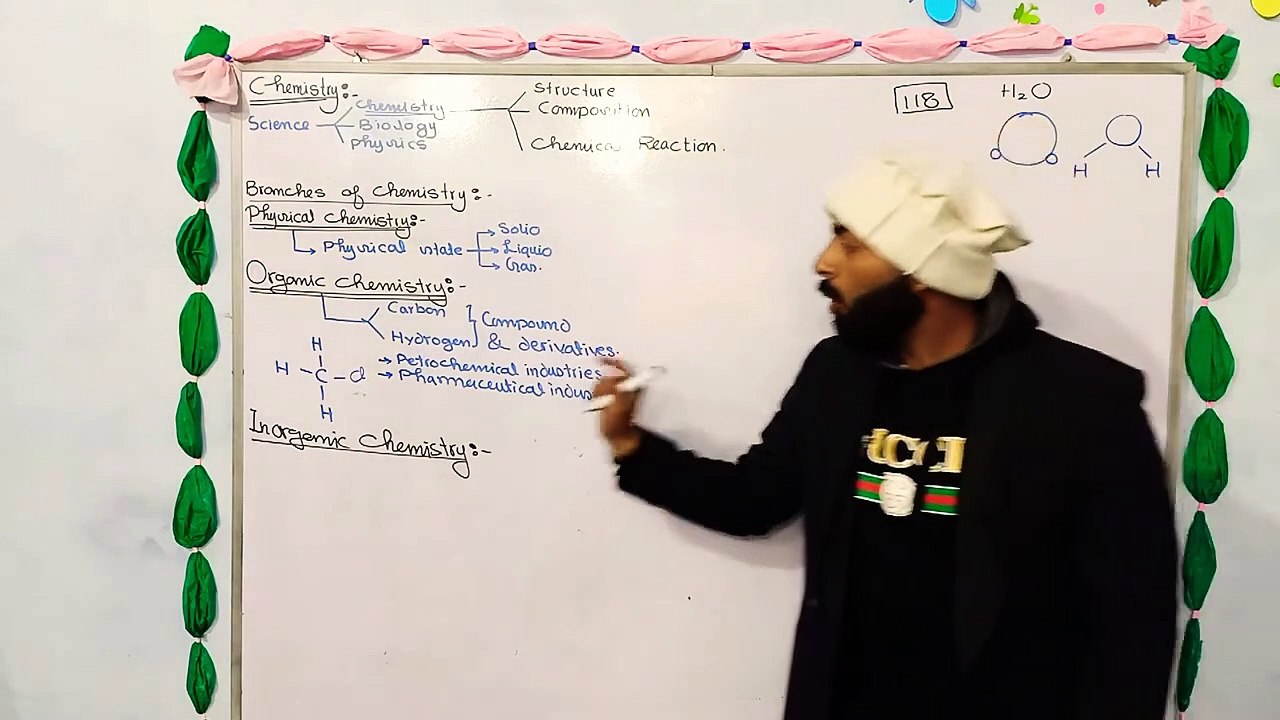 Chemistry:-
Science Chemistry Structure
Biology Composition
Physics Chemical Reaction.
118
H₂O
H H
Branches of Chemistry:-
Physical Chemistry:-
Physical state Solid
Liquid
Gas.
Organic Chemistry:-
Carbon
Hydrogen
Compound
& derivatives.
→ Petrochemical industries
→ Pharmaceutical indus
H
H - C - Cl
H
Inorganic Chemistry:-